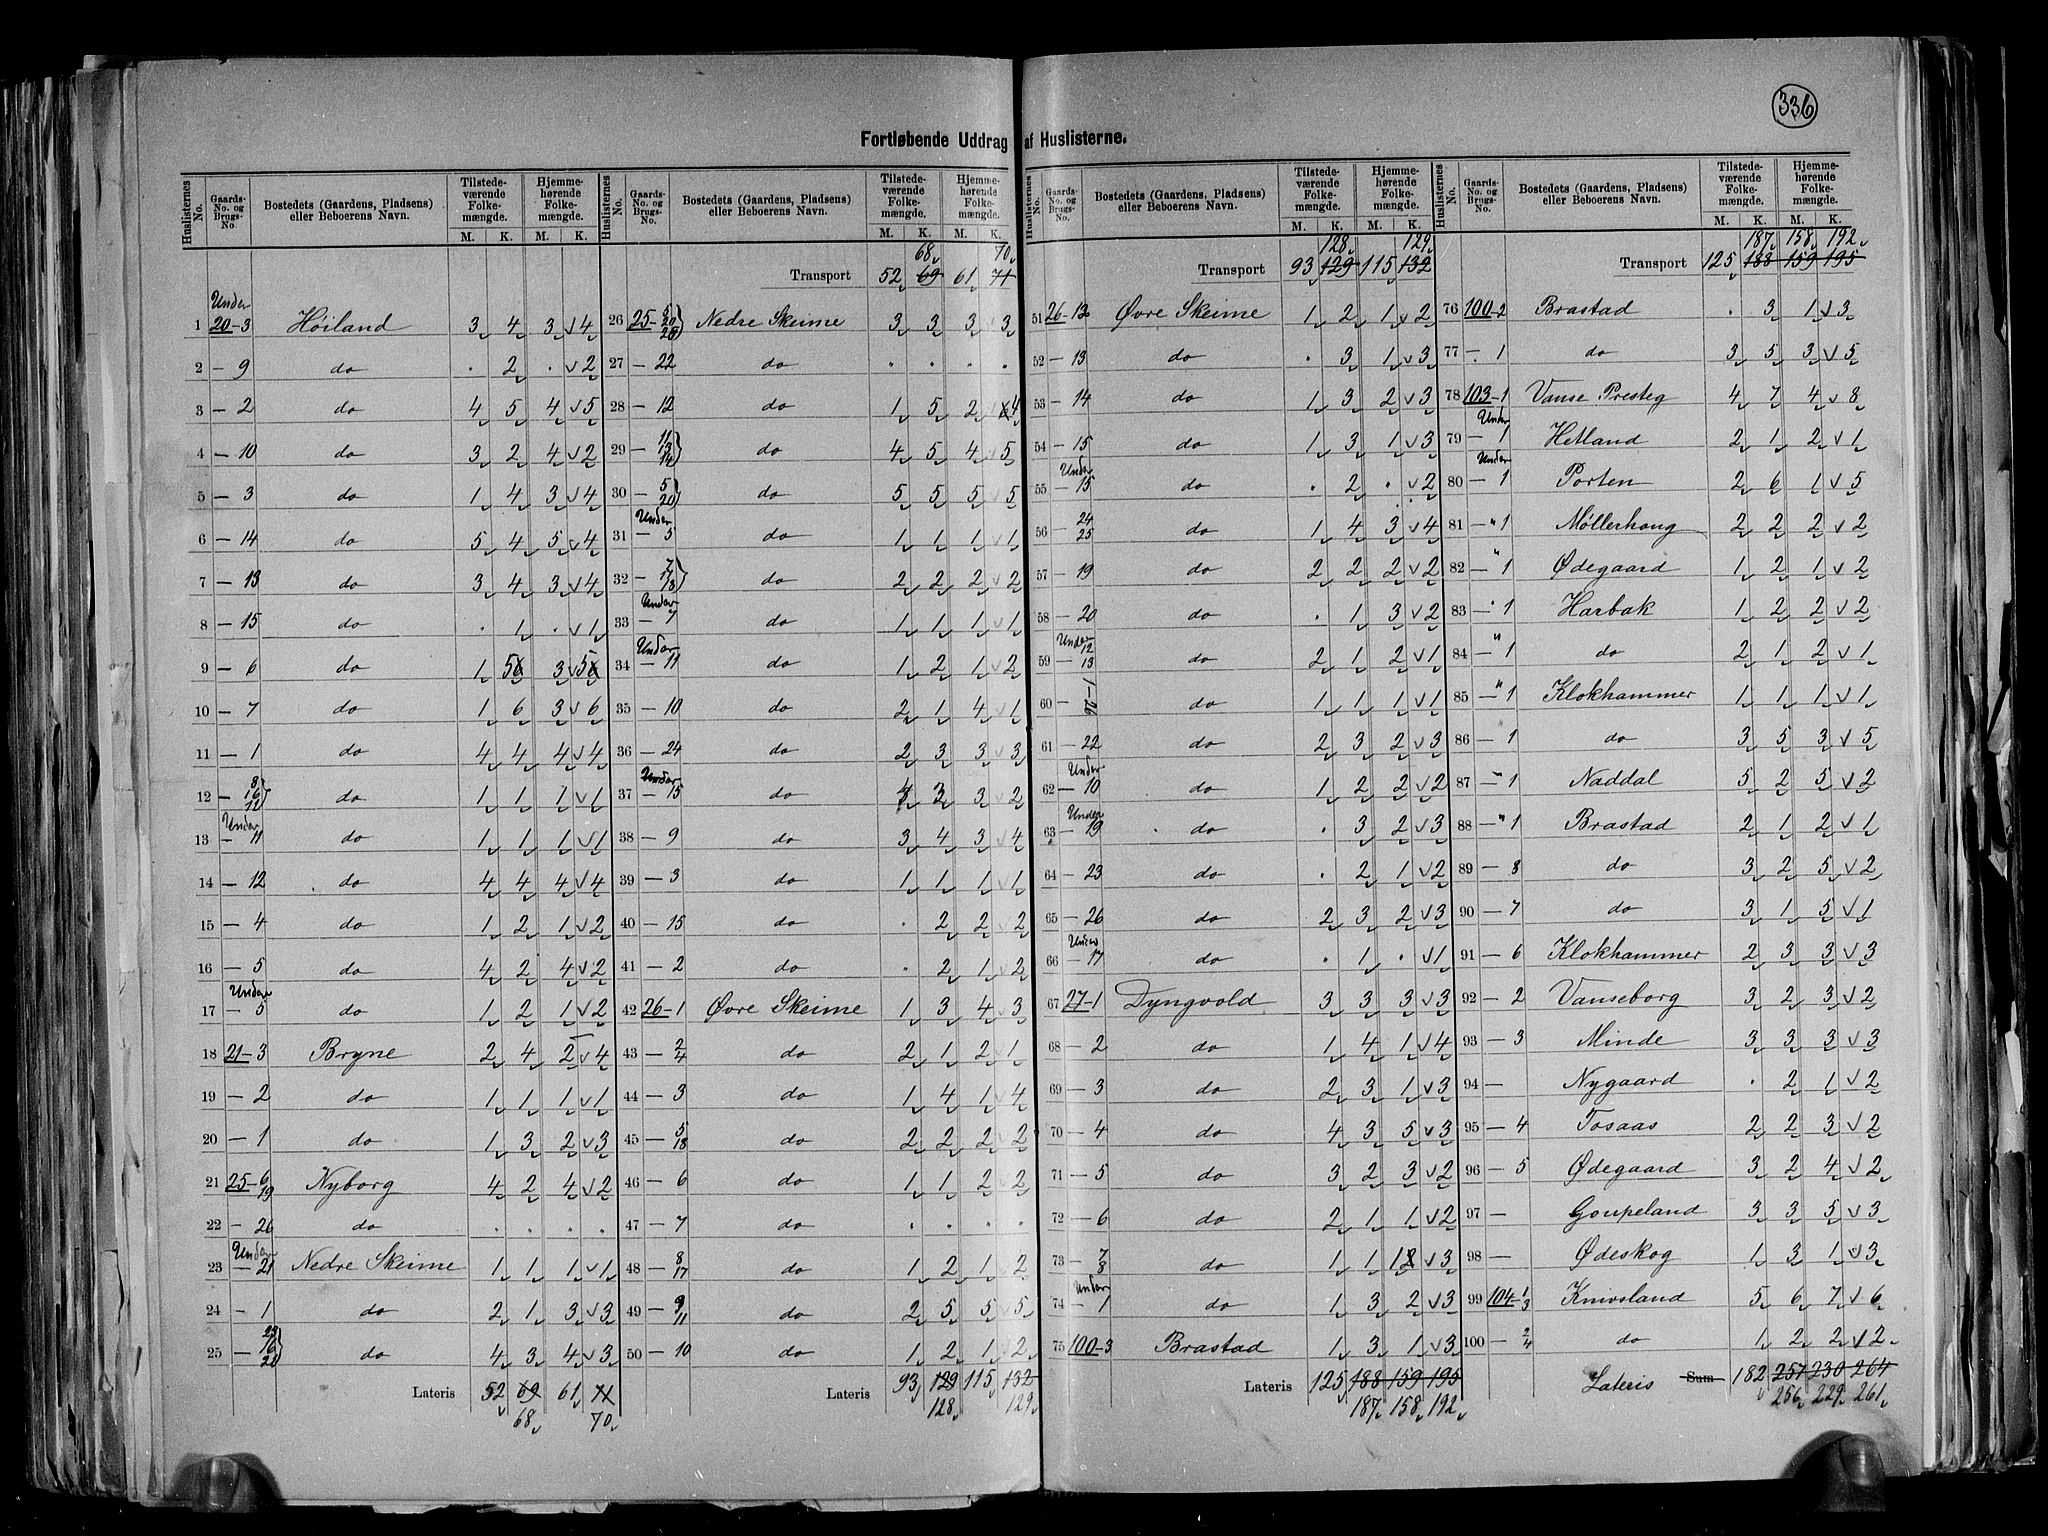 336
Fortløbende Uddrag af Huslisterne.
Huslisternes No. | Gaards-No. og Brugs-No. | Bostedets (Gaardens, Pladsens) eller Beboerens Navn. | Tilstedeværende Folkemængde. M. K. | Hjemmehørende Folkemængde. M. K.
1 Under 20-3 Høiland 3 4 3 4
2 - 9 do . 2 . 2
3 - 2 do 4 5 4 5
4 - 10 do 3 2 4 2
5 - 3 do 1 4 3 4
6 - 14 do 5 4 5 4
7 - 13 do 3 4 3 4
8 - 15 do . 1 . 1
9 - 6 do 1 5 3 5
10 - 7 do 1 6 3 6
11 - 1 do 4 4 4 4
12 - 8 16 12 do 1 1 1 1
13 Under - 11 do 1 1 1 1
14 - 12 do 4 4 4 4
15 - 4 do 1 2 1 2
16 - 5 do 4 2 4 2
17 Under - 5 do 1 2 1 2
18 21-3 Bryne 2 4 2 4
19 - 2 do 1 1 1 1
20 - 1 do 1 3 2 3
21 25-6 19 Nyborg 4 2 4 2
22 - 26 do . . . .
23 Under - 21 Nedre Skeime 1 1 1 1
24 - 1 do 2 1 3 3
25 - 23 16 20 do 4 3 4 3
Lateris 52 69 61 71
68 70
Huslisternes No. | Gaards-No. og Brugs-No. | Bostedets (Gaardens, Pladsens) eller Beboerens Navn. | Tilstedeværende Folkemængde. M. K. | Hjemmehørende Folkemængde. M. K.
68 70
Transport 52 69 61 71
26 25- Nedre Skeime 3 3 3 3
27 - 22 do . . . .
28 - 12 do 1 5 2 4
29 - 11 13 14 do 4 5 4 5
30 - 5 20 do 5 5 5 5
31 Under - 5 do 1 1 1 1
32 - 7 18 do 2 2 2 2
33 Under - 7 do 1 1 1 1
34 Under - 11 do 1 2 1 2
35 - 10 do 2 1 4 1
36 - 24 do 2 3 3 3
37 Under - 15 do 3 2
38 - 9 do 3 4 3 4
39 - 3 do 1 1 1 1
40 - 15 do . 2 2 2
41 - 2 do . 2 1 2
42 26-1 Øvre Skeime 1 3 4 3
43 - 2 4 do 2 1 2 1
44 - 3 do 1 4 1 4
45 - 5 18 do 2 2 2 2
46 - 6 do 1 1 2 2
47 - 7 do . . . .
48 - 8 17 do 1 2 1 2
49 - 9 11 do 2 5 5 5
50 - 10 do 1 2 1 2
Lateris 93 129 115 132
128 129
Huslisternes No. | Gaards-No. og Brugs-No. | Bostedets (Gaardens, Pladsens) eller Beboerens Navn. | Tilstedeværende Folkemængde. M. K. | Hjemmehørende Folkemængde. M. K.
128 129
Transport 93 129 115 132
51 26-12 Øvre Skeime 1 2 1 2
52 - 13 do . 3 1 3
53 - 14 do 1 3 2 3
54 - 15 do 1 3 1 3
55 Under - 15 do . 2 . 2
56 - 24 25 do 1 4 3 4
57 - 19 do 2 2 2 2
58 - 20 do . 1 3 2
59 Under - 12 13 do 2 1 2 1
60 - 1-26 do 1 1 1 1
61 - 22 do 2 3 2 3
62 Under - 10 do 1 2 2 2
63 Under - 19 do . 3 2 3
64 - 23 do . 2 1 2
65 - 26 do 2 3 2 3
66 Under - 17 do . 1 . 1
67 27-1 Dyngvold 3 3 3 3
68 - 2 do 1 4 1 4
69 - 3 do 2 3 1 3
70 - 4 do 4 3 5 3
71 - 5 do 3 2 3 2
72 - 6 do 2 1 1 2
73 - 7 8 do 1 1 1 3
74 Under - 1 do 1 3 2 3
75 100-3 Brastad 1 3 1 3
Lateris 125 188 159 195
187 158 192
Huslisternes No. | Gaards-No. og Brugs-No. | Bostedets (Gaardens, Pladsens) eller Beboerens Navn. | Tilstedeværende Folkemængde. M. K. | Hjemmehørende Folkemængde. M. K.
187 158 192
Transport 125 188 159 195
76 100-2 Brastad . 3 1 3
77 - 1 do 3 5 3 5
78 103-1 Vanse Presteg 4 7 4 8
79 Under - 1 Hetland 2 1 2 1
80 Under - 1 Porten 2 6 1 5
81 - " 1 Møllerhaug 2 2 2 2
82 - " 1 Ødegaard 1 2 1 2
83 - " 1 Harbak 1 2 2 2
84 - " 1 do 2 1 2 1
85 - " 1 Klokhammer 1 1 1 1
86 - 1 do 3 5 3 5
87 - " 1 Naddal 5 2 5 2
88 - " 1 Brastad 2 1 2 1
89 - 8 do 3 2 5 2
90 - 7 do 3 1 5 1
91 - 6 Klokhammer 2 3 3 3
92 - 2 Vanseborg 3 2 3 2
93 - 3 Minde 3 3 3 3
94 - Nygaard . 2 1 2
95 - 4 Tosaas 2 2 3 2
96 - 5 Ødegaard 3 2 4 2
97 - Goupeland 3 3 5 3
98 - Ødeskog 1 3 1 3
99 104-1 3 Knivsland 5 6 7 6
100 - 2 4 do 1 2 2 2
Lateris Sum 182 257 230 264
256 229 261